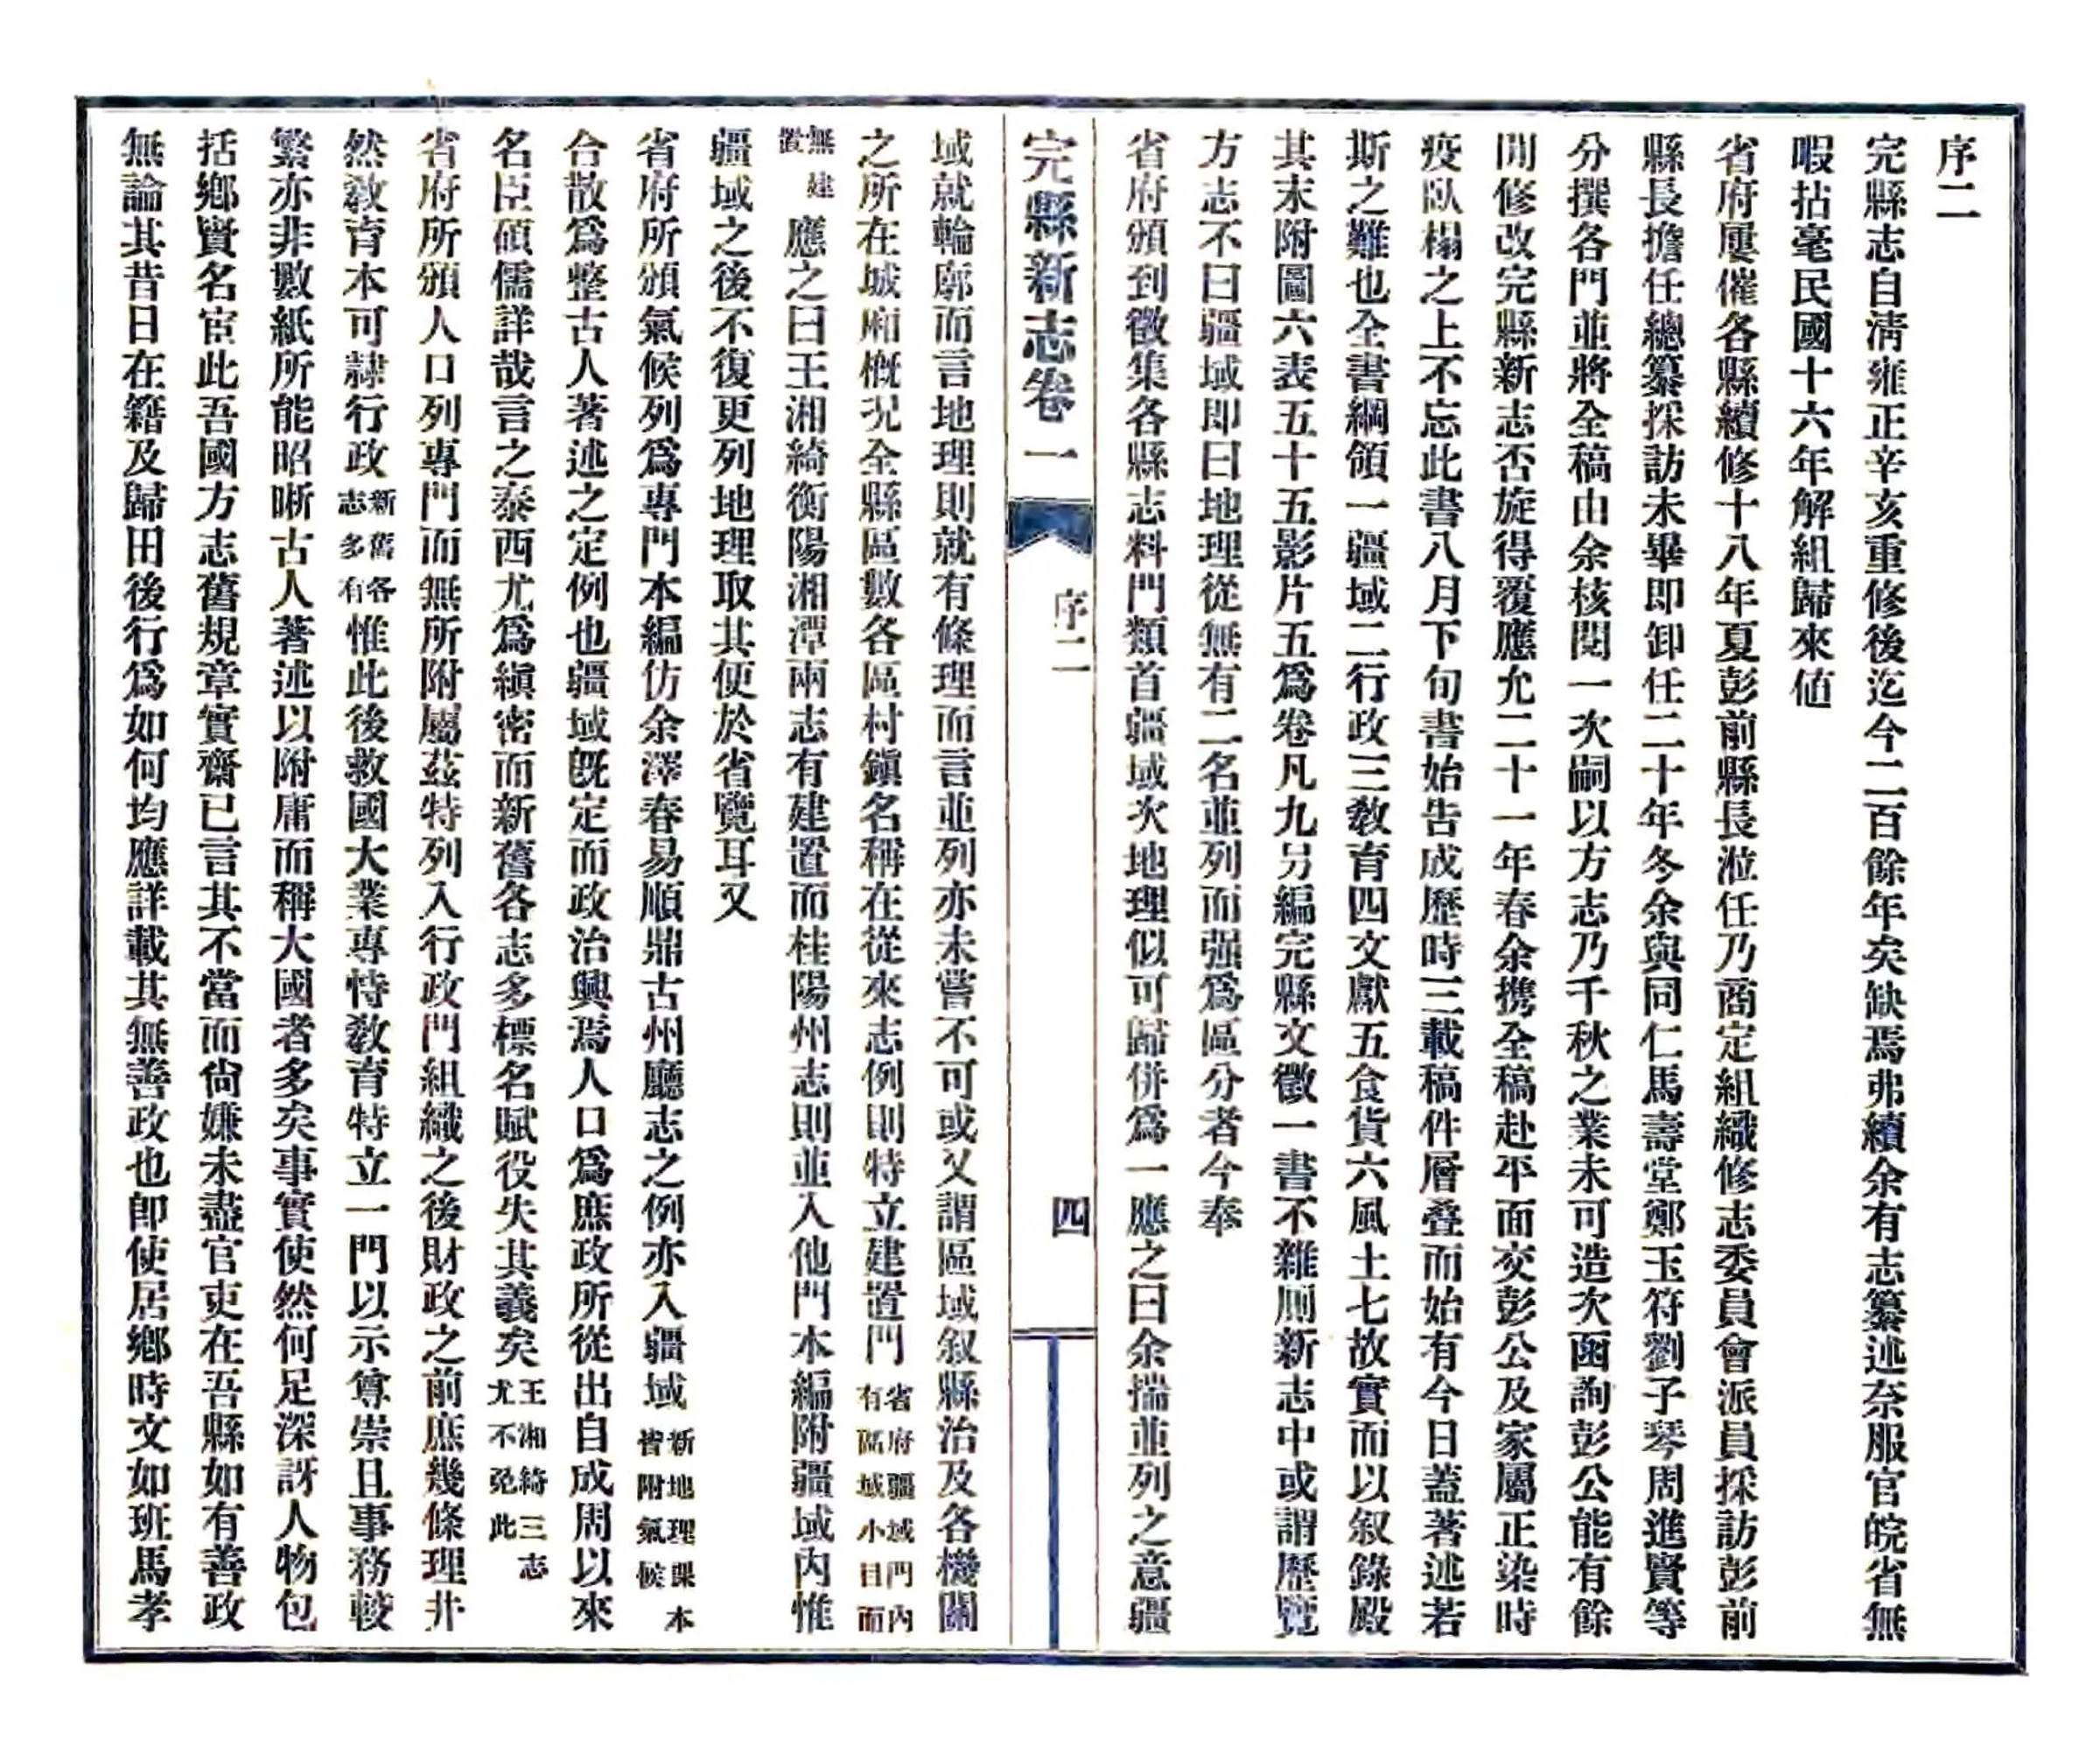 序二
完縣志自淸雍正辛亥重修後迄今二百餘年矣缺焉弗續余有志纂述奈服官皖省無
暇拈毫民國十六年解組歸來値
省府屢催各縣續修十八年夏彭前縣長涖任乃商定組織修志委員會派員採訪彭前
縣長擔任總纂採訪未畢卽卸任二十年冬余與同仁馬壽堂鄭玉符劉子琴周進賢等
分撰各門並將全稿由余核閱一次嗣以方志乃千秋之業未可造次函詢彭公能有餘
閒修改完縣新志否旋得覆應允二十一年春余携全稿赴平面交彭公及家屬正染時
疫臥榻之上不忘此書八月下旬書始告成歷時三載稿件層叠而始有今日蓋著述若
斯之難也全書綱領一疆域二行政三敎育四文獻五食貨六風土七故實而以叙錄殿
其末附圖六表五十五影片五爲卷凡九另編完縣文徵一書不雜厠新志中或謂歷覽
方志不曰疆域卽曰地理從無有二名並列而强爲區分者今奉
省府頒到徵集各縣志料門類首疆域次地理似可歸併爲一應之曰余揣並列之意疆
完縣新志卷一 序二 四
域就輪廓而言地理則就有條理而言並列亦未嘗不可或又謂區域叙縣治及各機關
之所在城廂槪况全縣區數各區村鎭名稱在從來志例則特立建置門省府疆域門內有區域小目而
無建置應之曰王湘綺衡陽湘潭兩志有建置而桂陽州志則並入他門本編附疆域內惟
疆域之後不復更列地理取其便於省覽耳又
省府所頒氣候列爲專門本編仿余澤春易順鼎古州廳志之例亦入疆域新地理課本皆附氣候
合散爲整古人著述之定例也疆域旣定而政治興焉人口爲庶政所從出自成周以來
名臣碩儒詳哉言之泰西尤爲縝密而新舊各志多標名賦役失其義矣王湘綺三志尤不免此
省府所頒人口列專門而無所附屬茲特列入行政門組織之後財政之前庶幾條理井
然敎育本可隸行政新舊各志多有惟此後救國大業專恃敎育特立一門以示尊崇且事務較
繁亦非數紙所能昭晰古人著述以附庸而稱大國者多矣事實使然何足深訝人物包
括鄕賢名宦此吾國方志舊規章實齋已言其不當而尙嫌未盡官吏在吾縣如有善政
無論其昔日在籍及歸田後行爲如何均應詳載其無善政也卽使居鄕時文如班馬孝